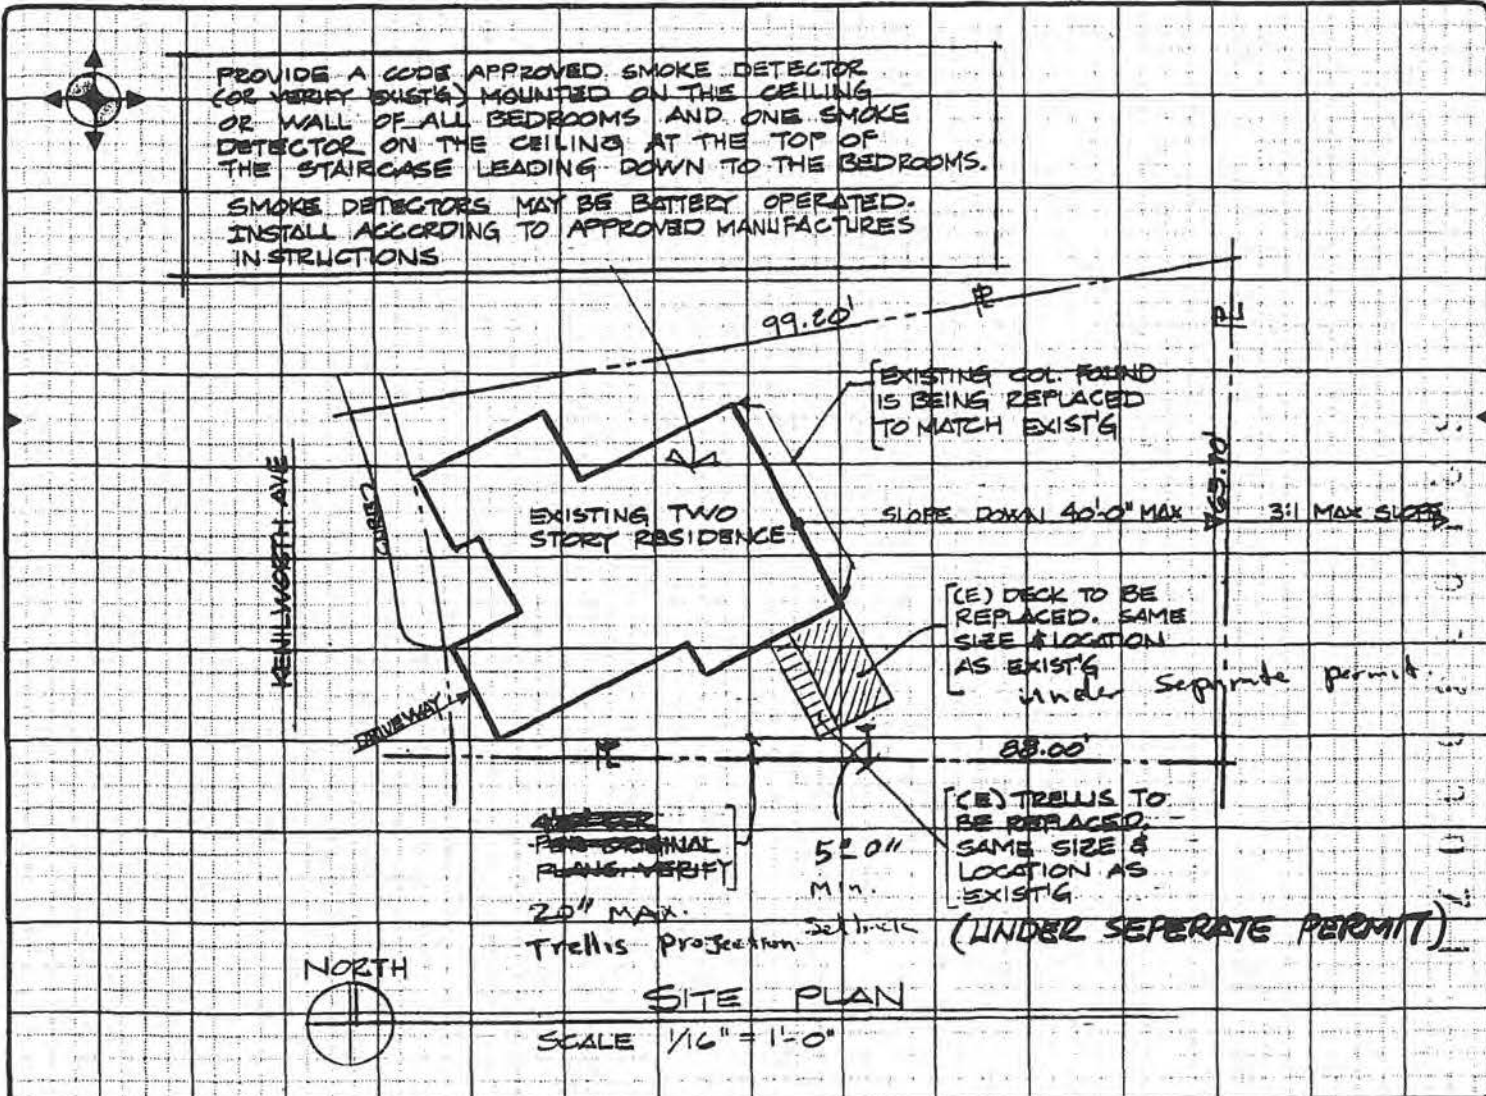 PROVIDE A CODE APPROVED SMOKE DETECTOR
(OR VERIFY EXIST'G) MOUNTED ON THE CEILING
OR WALL OF ALL BEDROOMS AND ONE SMOKE
DETECTOR ON THE CEILING AT THE TOP OF
THE STAIRCASE LEADING DOWN TO THE BEDROOMS.
SMOKE DETECTORS MAY BE BATTERY OPERATED.
INSTALL ACCORDING TO APPROVED MANUFACTURES
INSTRUCTIONS
99.20'
PL
PL
EXISTING COL. FOUND
IS BEING REPLACED
TO MATCH EXIST'G
KENILWORTH AVE
CURB
EXISTING TWO
STORY RESIDENCE
SLOPE DOWN 40'-0" MAX
3:1 MAX SLOPE
(E) DECK TO BE
REPLACED. SAME
SIZE & LOCATION
AS EXIST'G
under separate permit.
DRIVEWAY
PL
88.00'
PER ORIGINAL
PLANS. VERIFY
20" MAX.
Trellis Projection
5'-0"
Min.
Setback
(E) TRELLIS TO
BE REPLACED.
SAME SIZE &
LOCATION AS
EXIST'G
(UNDER SEPERATE PERMIT)
NORTH
SITE PLAN
SCALE 1/16" = 1'-0"